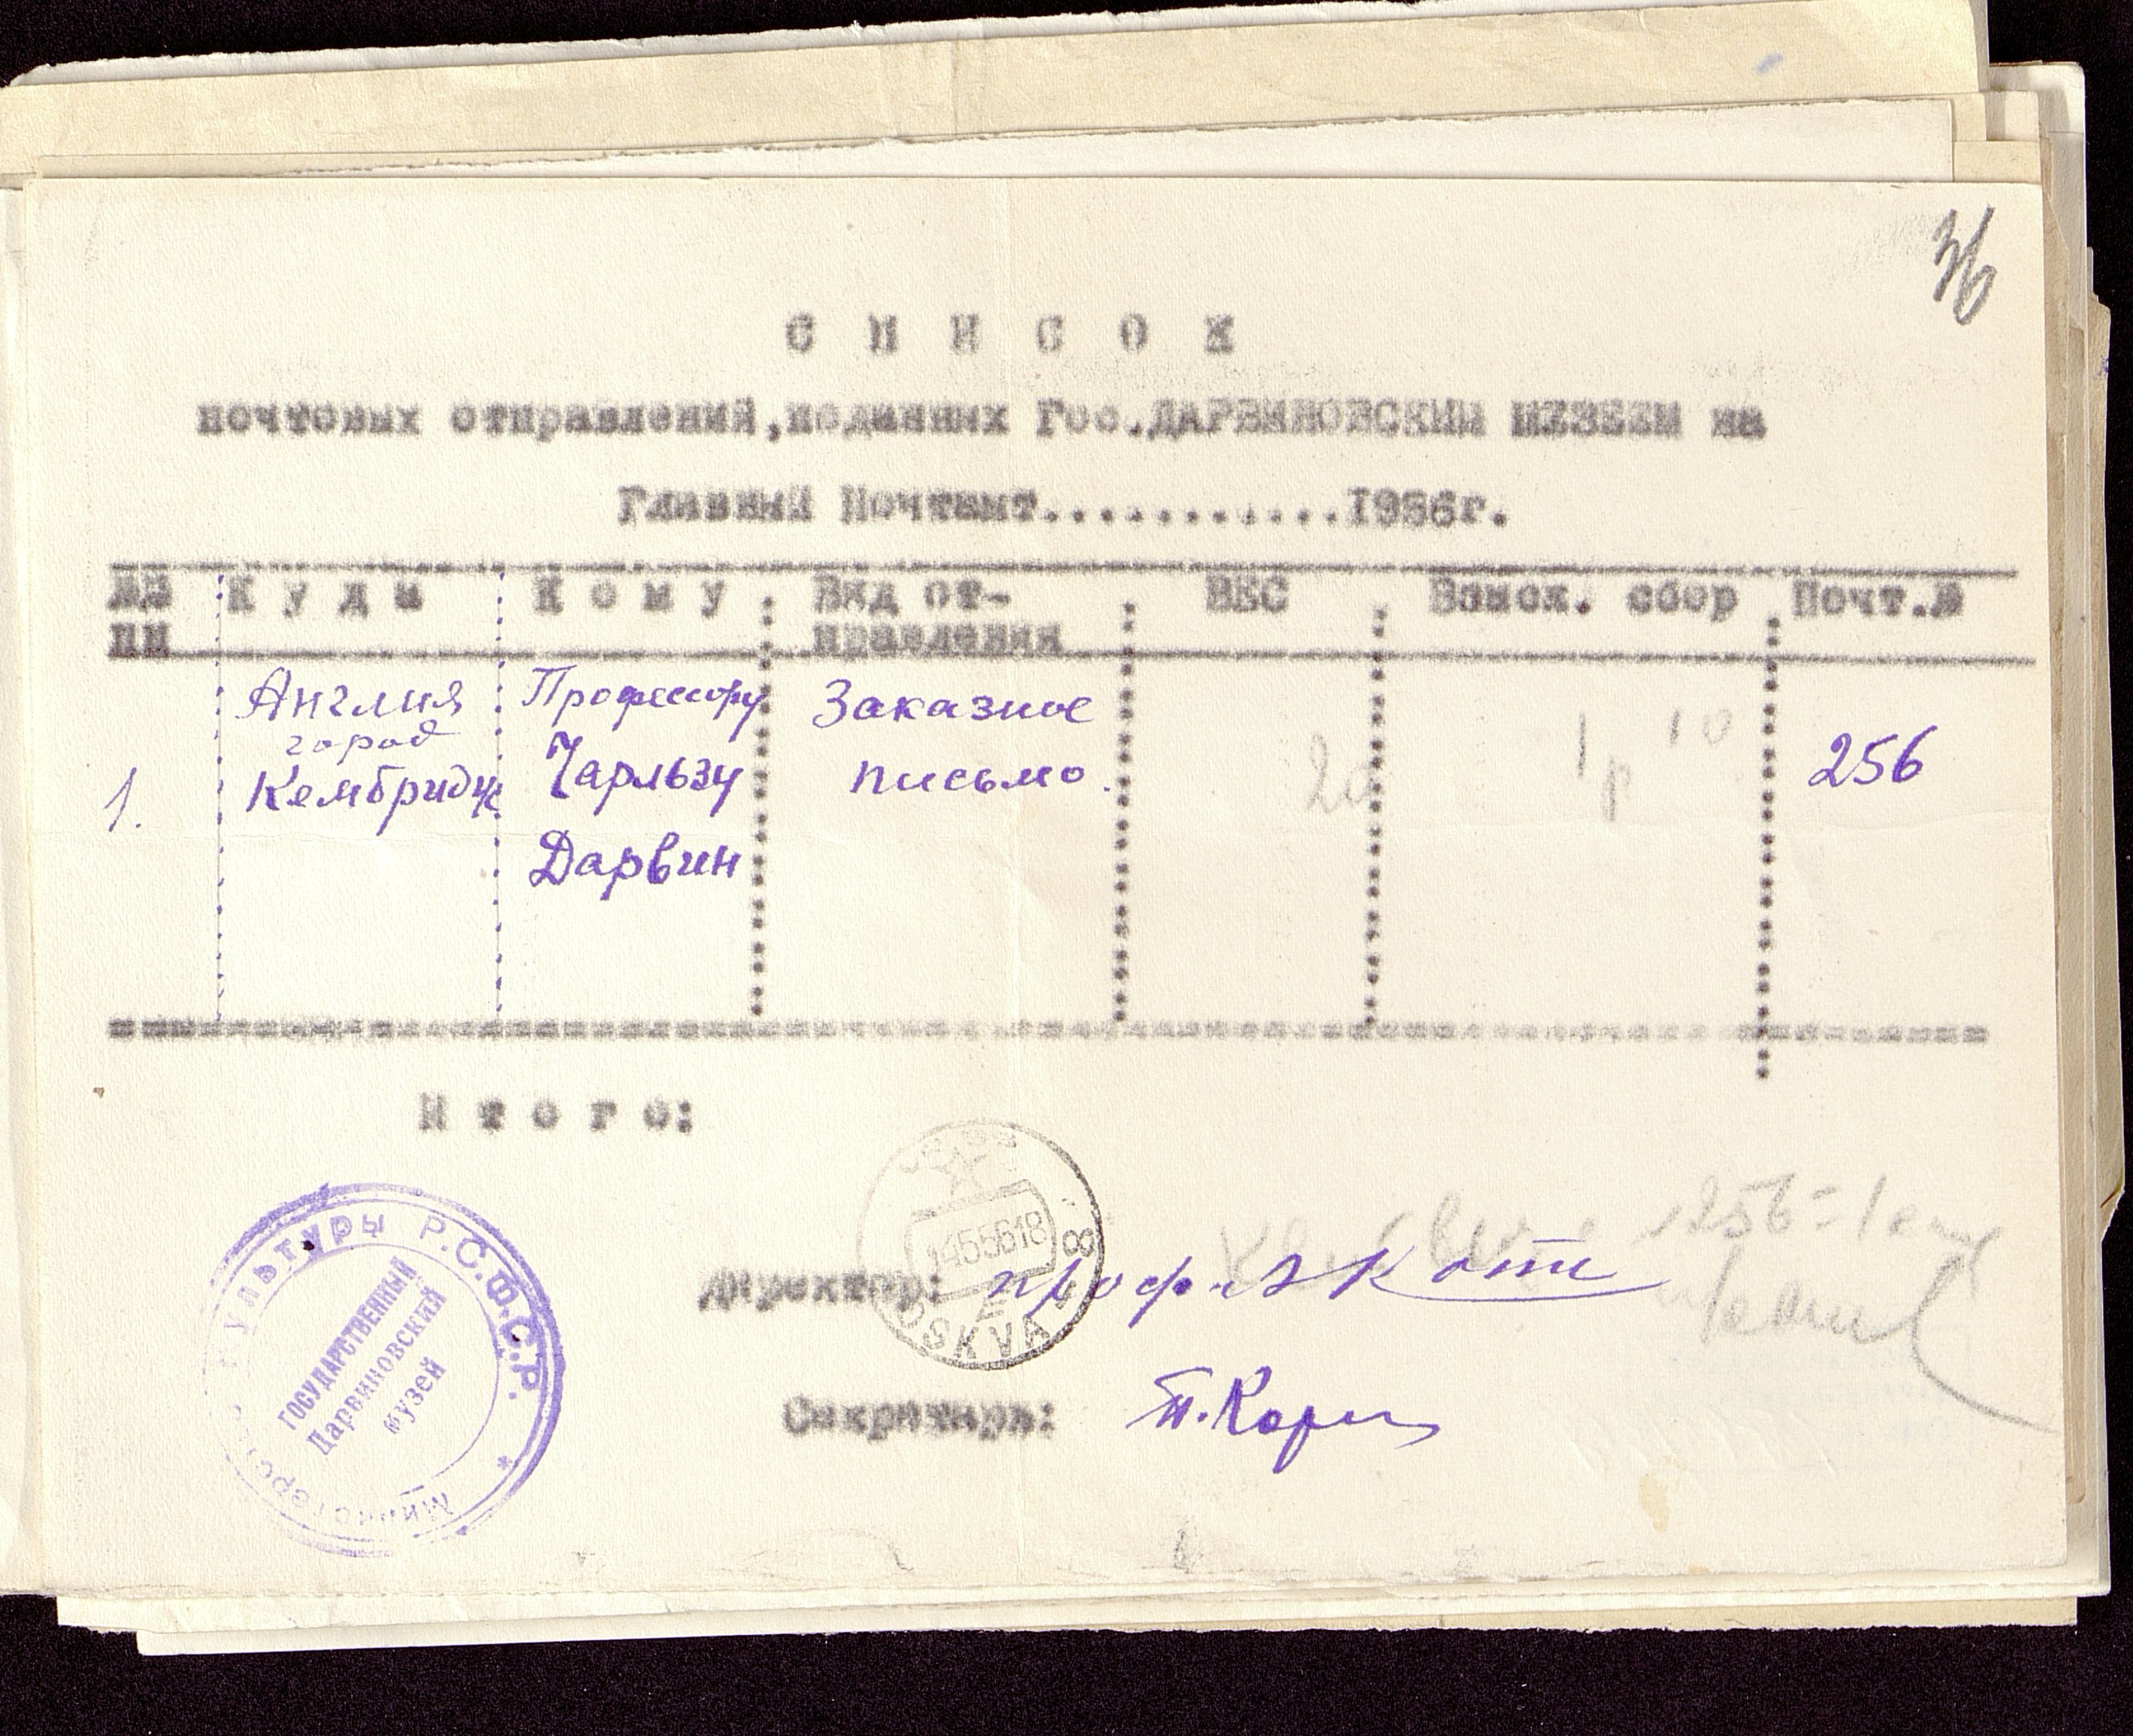 36
С П И С О К
почтовых отправлений,поданных Гос.ДАРВИНОВСКИМ МУЗЕЕМ на
Главный Почтамт............1956г.
№№ К у д а К о м у Вид от- ВЕС Взыск. сбор Почт.№
пп правления
Англия Профессору Заказное
город
1. Кембридж Чарльзу письмо. 20 1р 10 256
Дарвин
И т о г о:
14.5.56 18
8
Директор: проф. А Котс
256 = 1
SKVA
Секретарь:
Министерство культуры Р.С.Ф.С.Р. *
ГОСУДАРСТВЕННЫЙ
Дарвиновский
музей